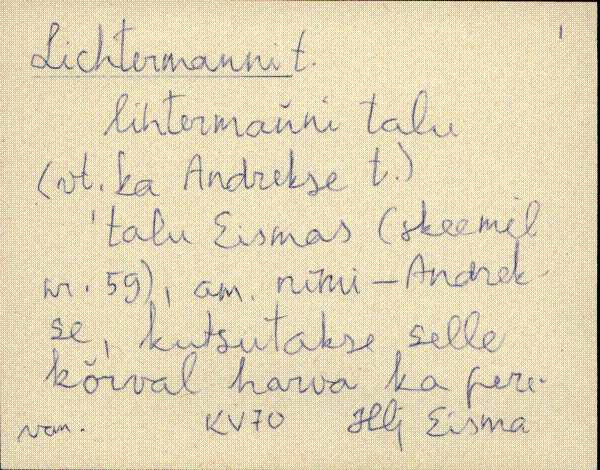 1
Lichtermanni t.
lihtermańni talu
(vt. ka Andrekse t.)
'talu Eismas (skeemil
nr. 59), am. nimi – Andrek-
se, kutsutakse selle
kõrval harva ka pere-
van. KV70 Hlj Eisma